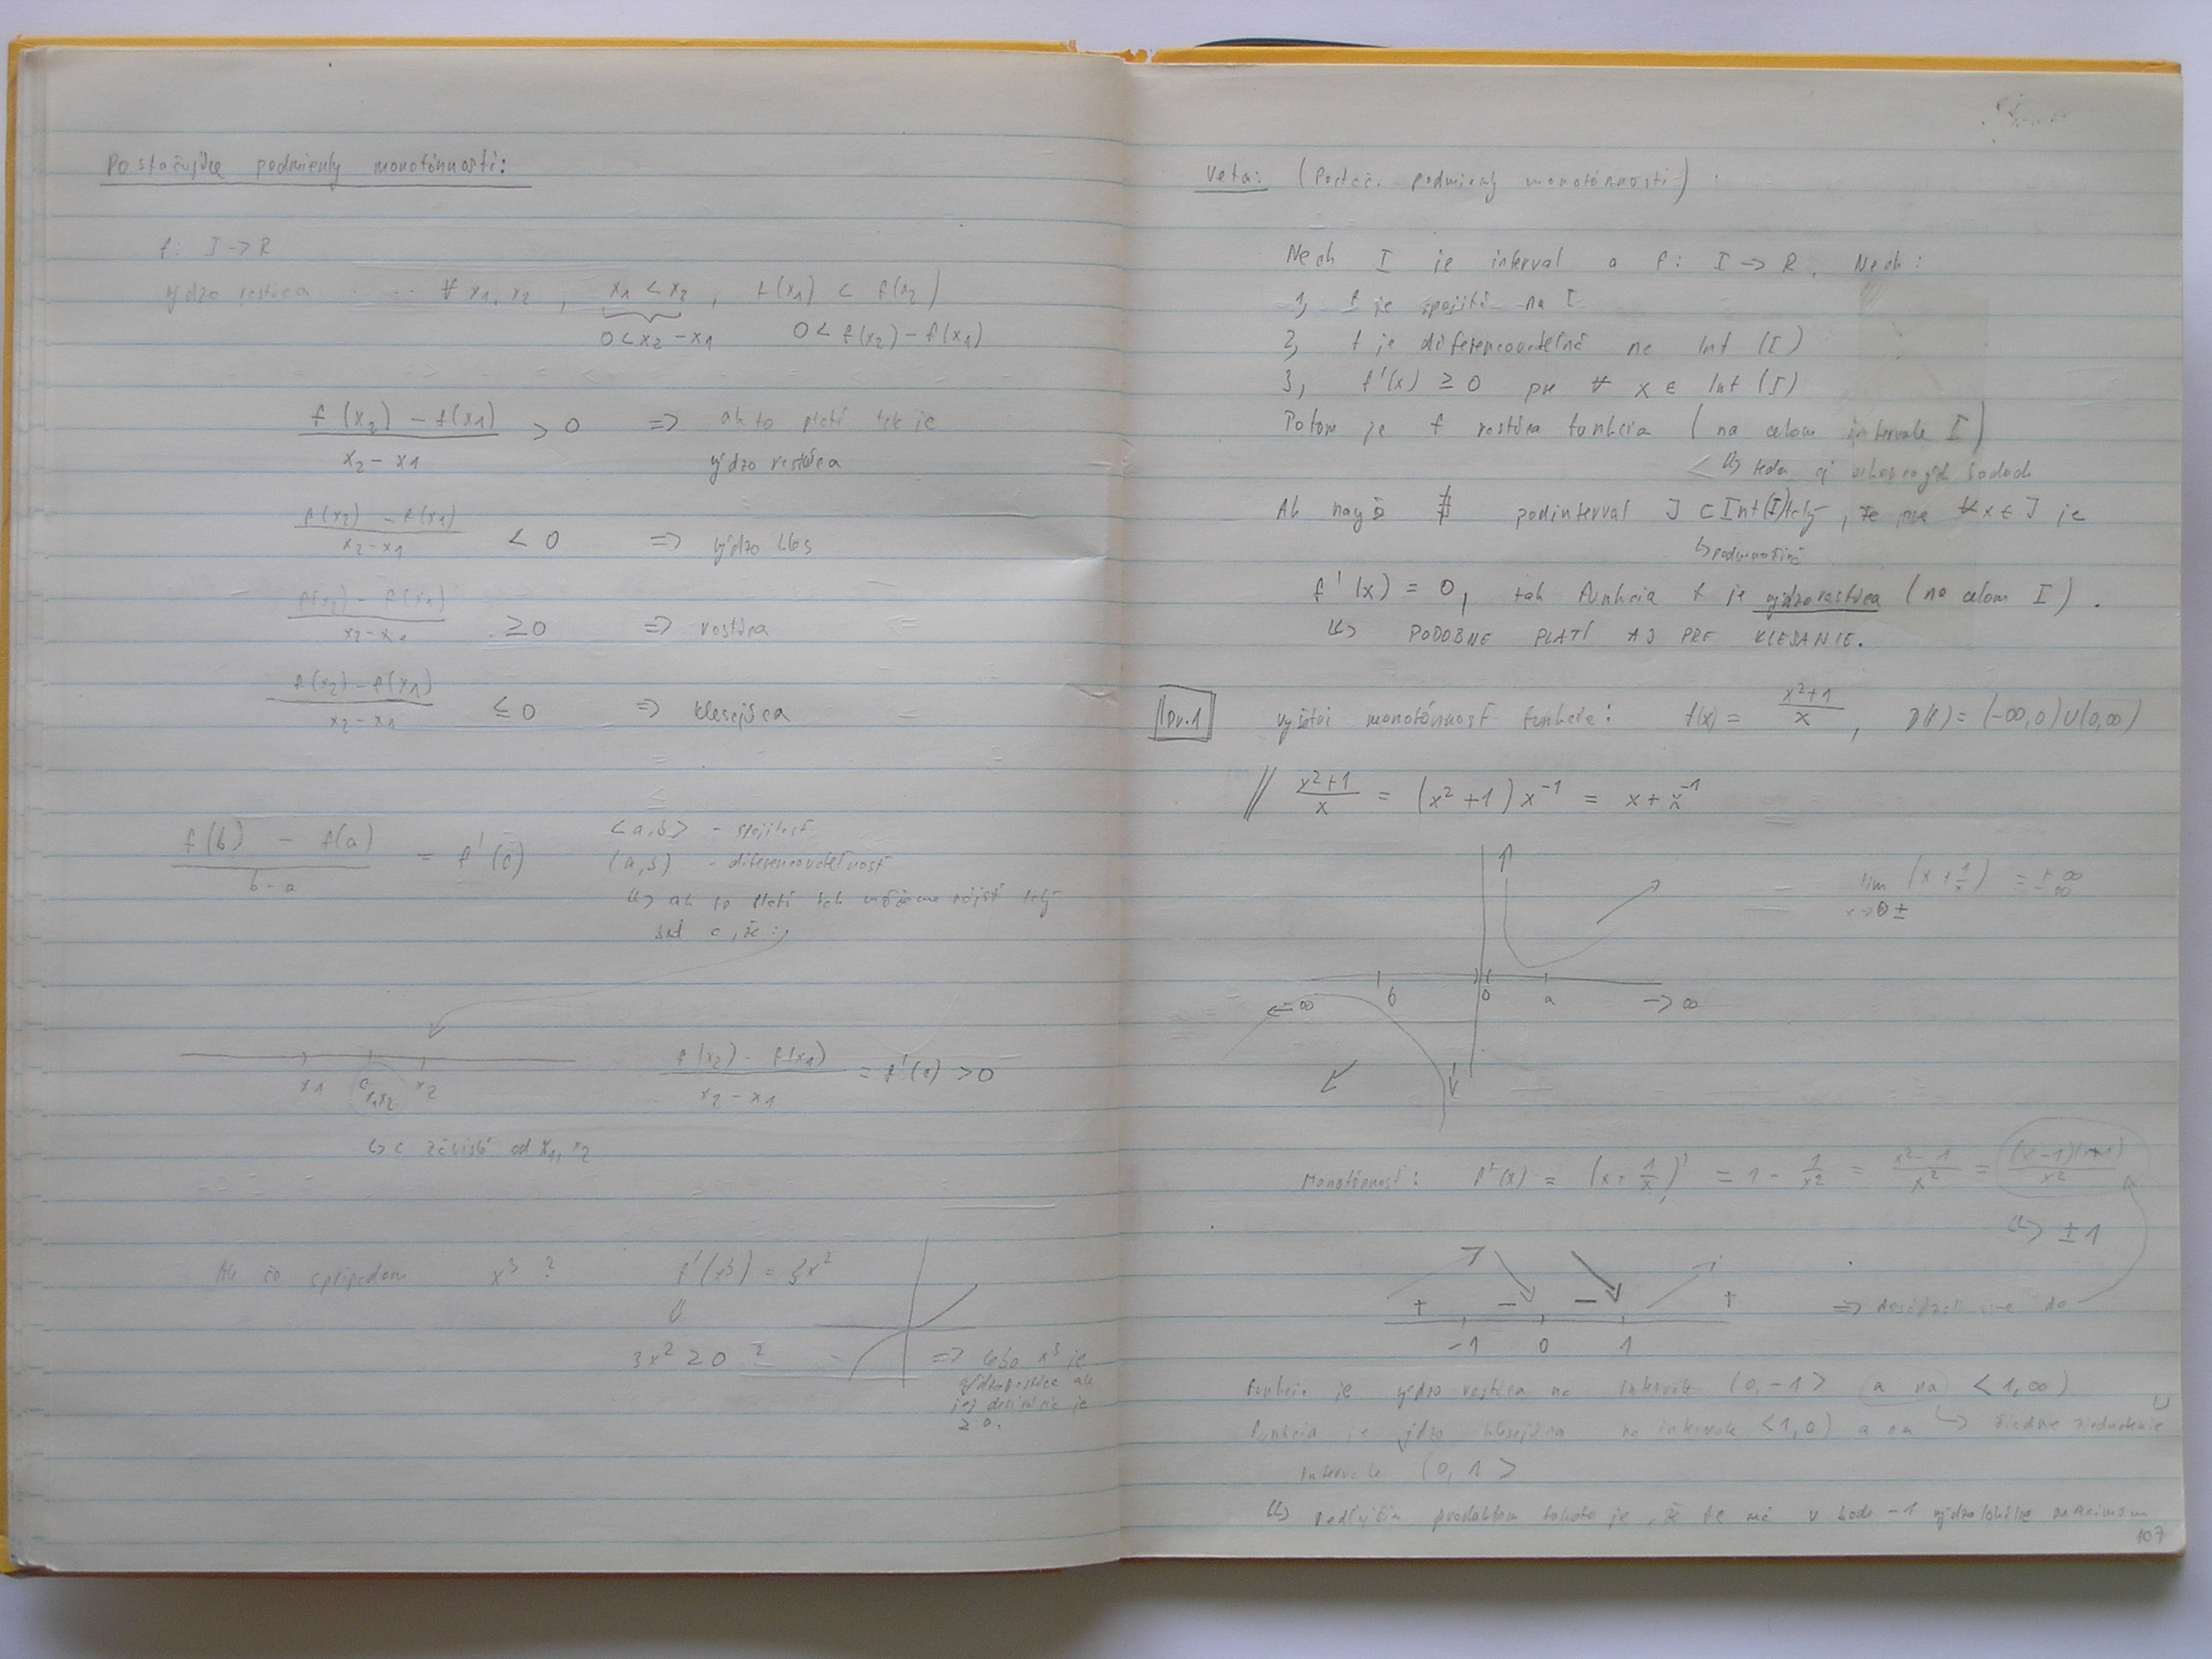 Postačujúce podmienky monotónnosti:
f: I -> R
rýdzo rastúca ..... ∀ x1, x2 , x1 < x2 , f(x1) < f(x2)
0 < x2 - x1 0 < f(x2) - f(x1)
(f(x2) - f(x1)) / (x2 - x1) > 0 => ak to platí tak je
rýdzo rastúca
(f(x2) - f(x1)) / (x2 - x1) < 0 => rýdzo kles
(f(x2) - f(x1)) / (x2 - x1) ≥ 0 => rastúca
(f(x2) - f(x1)) / (x2 - x1) ≤ 0 => klesajúca
(f(b) - f(a)) / (b - a) = f'(c)
<a,b> - spojitosť
(a,b) - diferencovateľnosť
↳ ak to platí tak môžeme nájsť taký
bod c, že:
x1 c x2
x1x2
(f(x2) - f(x1)) / (x2 - x1) = f'(c) > 0
↳ c závisí od x1, x2
Ale čo s prípadom x³ ? f'(x³) = 3x²
⇓
3x² ≥ 0 ?
=> lebo x³ je
rýdzorastúca ale
jej derivácia je
≥ 0.
Veta: (Postač. podmienky monotónnosti)
Nech I je interval a f: I -> R. Nech:
1, f je spojitá na I
2, f je diferencovateľná na Int (I)
3, f'(x) ≥ 0 pre ∀ x ∈ Int (I)
Potom je f rastúca funkcia (na celom intervale I)
↳ teda aj v bodoch
Ak navyš ∄ podinterval J ⊂ Int(I) taký, že pre ∀x ∈ J je
↳ podmnožina
f'(x) = 0, tak funkcia f je rýdzorastúca (na celom I).
↳ PODOBNE PLATÍ AJ PRE KLESANIE.
Pr.1 Vyšetri monotónnosť funkcie: f(x) = (x²+1)/x , D(f) = (-∞,0)∪(0,∞)
// (x²+1)/x = (x²+1) x⁻¹ = x + x⁻¹
lim (x + 1/x) = ±∞
x->0±
b 0 a
<- -∞ -> ∞
Monotónnosť: f'(x) = (x + 1/x)' = 1 - 1/x² = (x²-1)/x² = (x-1)(x+1)/x²
↳ ±1
+ - - +
-1 0 1
=> dosádzali sme do
Funkcia je rýdzo rastúca na intervale (0,-1> a na <1,∞)
Funkcia je rýdzo klesajúca na intervale <1,0) a na
↳ žiadne zjednotenie ∪
intervale (0,1>
↳ Vedľajším produktom tohoto je, že má v bode -1 rýdzolokálne maximum
107